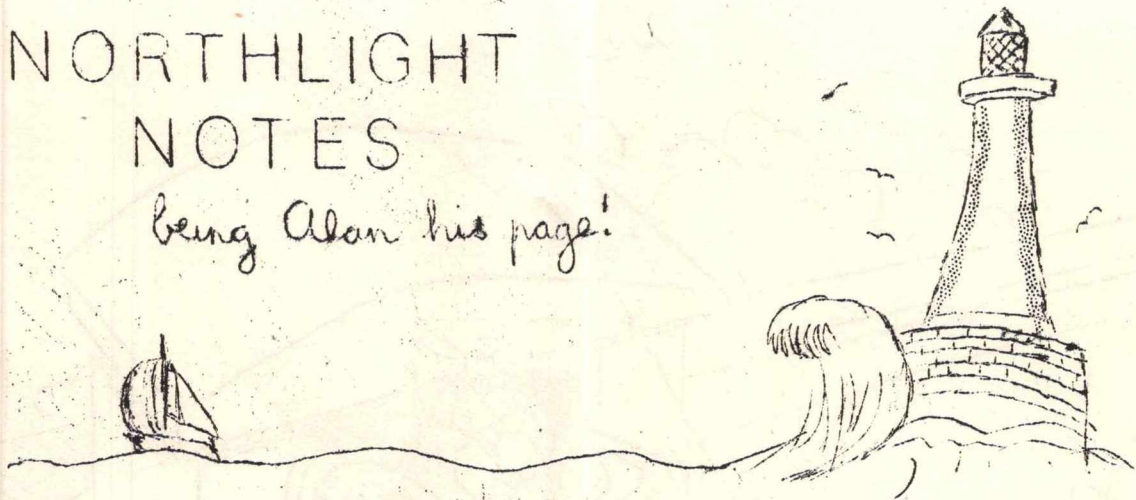 NORTHLIGHT
NOTES
being Alan his page!